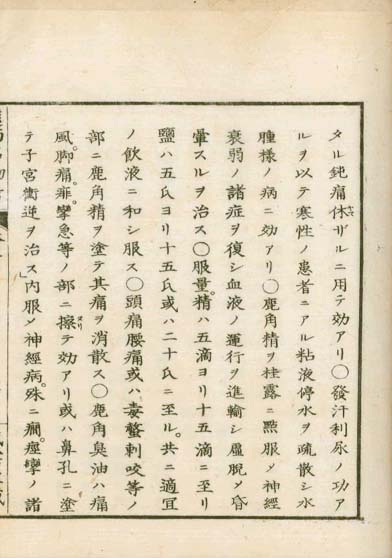 タル鈍痛休ザルニ用テ効アリ〇發汗利尿ノ功ア
ルヲ以テ寒性ノ患者ニアル粘液停水ヲ疏散シ水
腫樣ノ病ニ効アリ〇鹿角精ヲ桂露ニ㸃服メ神經
衰弱ノ諸症ヲ復シ血液ノ運行ヲ進輸シ虛脱メ昏
暈スルヲ治ス〇服量。精ハ五滴ヨリ十五滴ニ至リ
鹽ハ五氏ヨリ十五氏或ハ二十氏ニ至ル。共ニ適宜
ノ飲液ニ和シ服ス〇頭痛腰痛或ハ毒螫刺咬等ノ
部ニ鹿角精ヲ塗テ其痛ヲ消散ス〇鹿角臭油ハ痛
風。脚痛。痱。攣急等ノ部ニ擦テ効アリ或ハ鼻孔ニ塗
テ子宮衝逆ヲ治ス」内服メ神經病。殊ニ癇。痙攣ノ諸